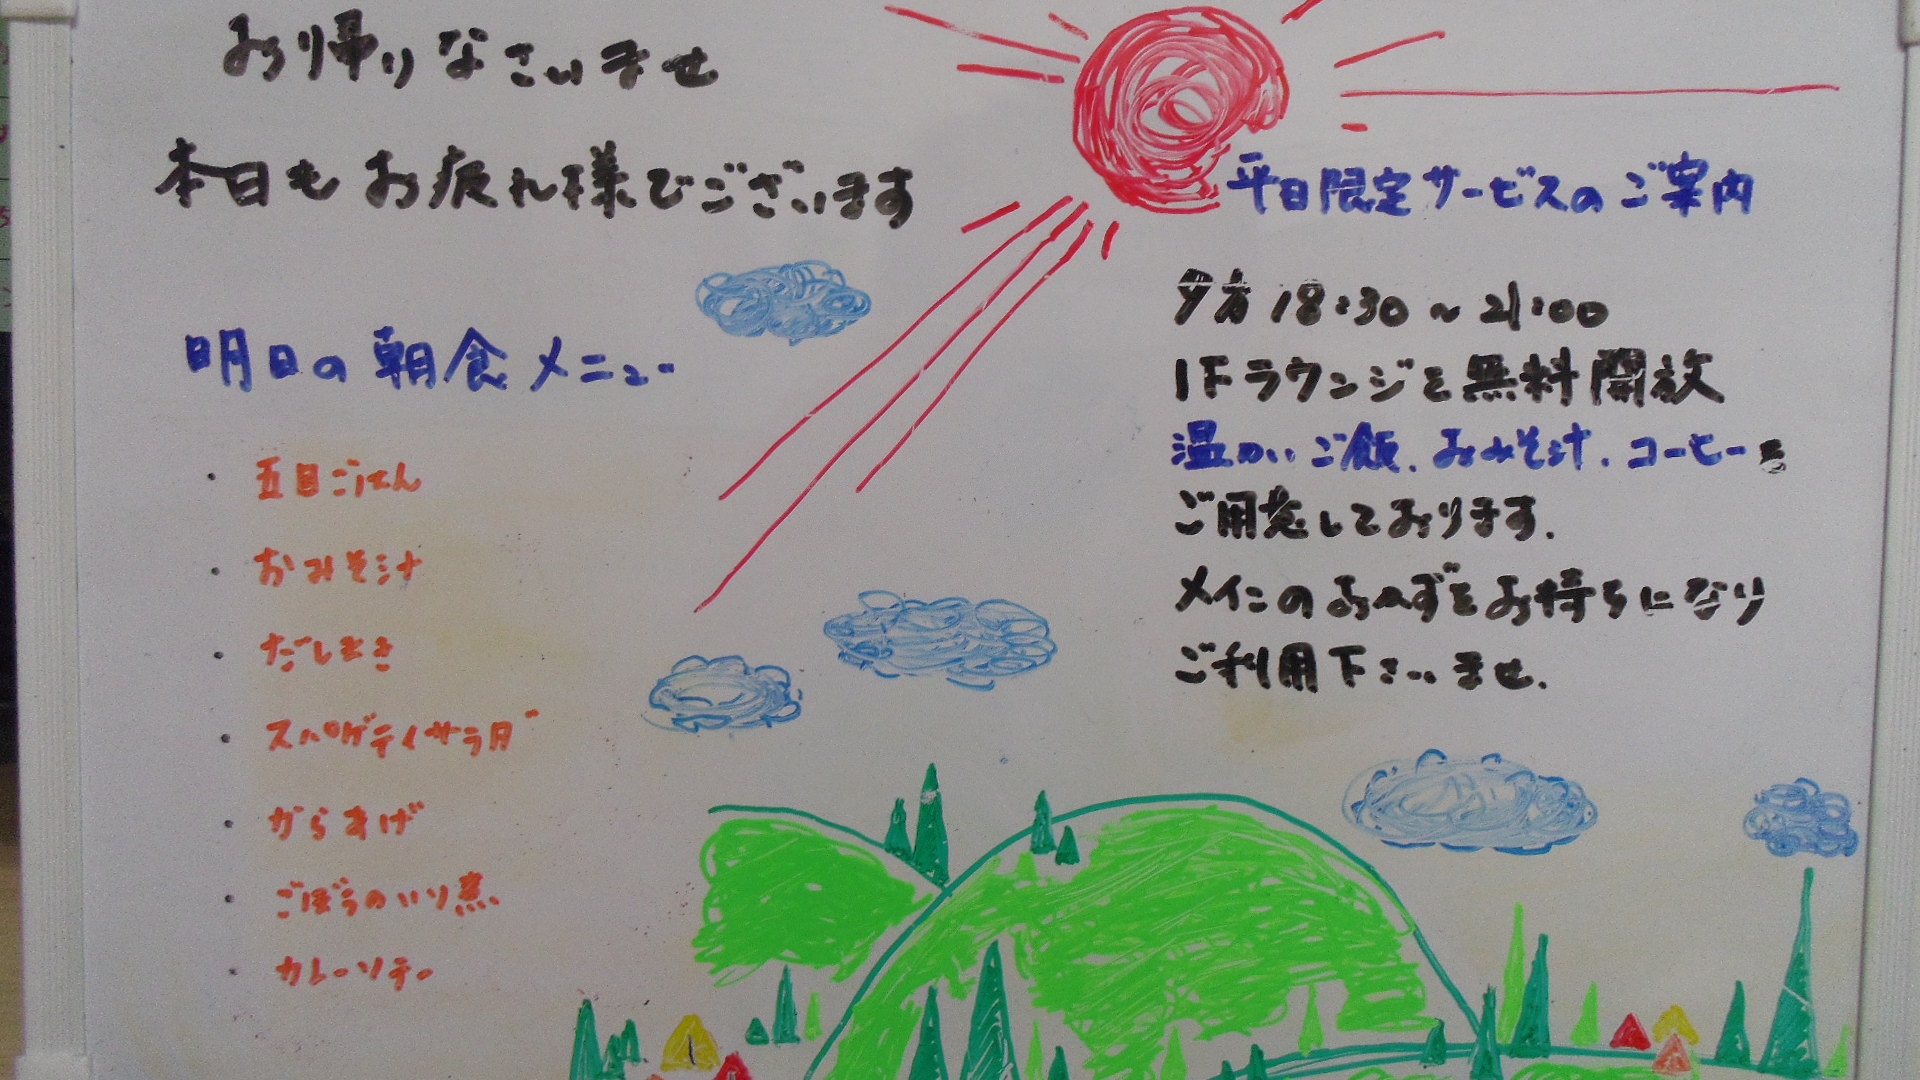 お帰りなさいませ
本日もお疲れ様でございます
明日の朝食メニュー
・五目ごはん
・おみそ汁
・だしまき
・スパゲティサラダ
・からあげ
・ごぼうのいり煮
・カレーソテー
平日限定サービスのご案内
夕方 18:30~21:00
1Fラウンジを無料開放
温かいご飯、おみそ汁、コーヒーを
ご用意しております。
メインのおかずをお持ちになり
ご利用下さいませ。